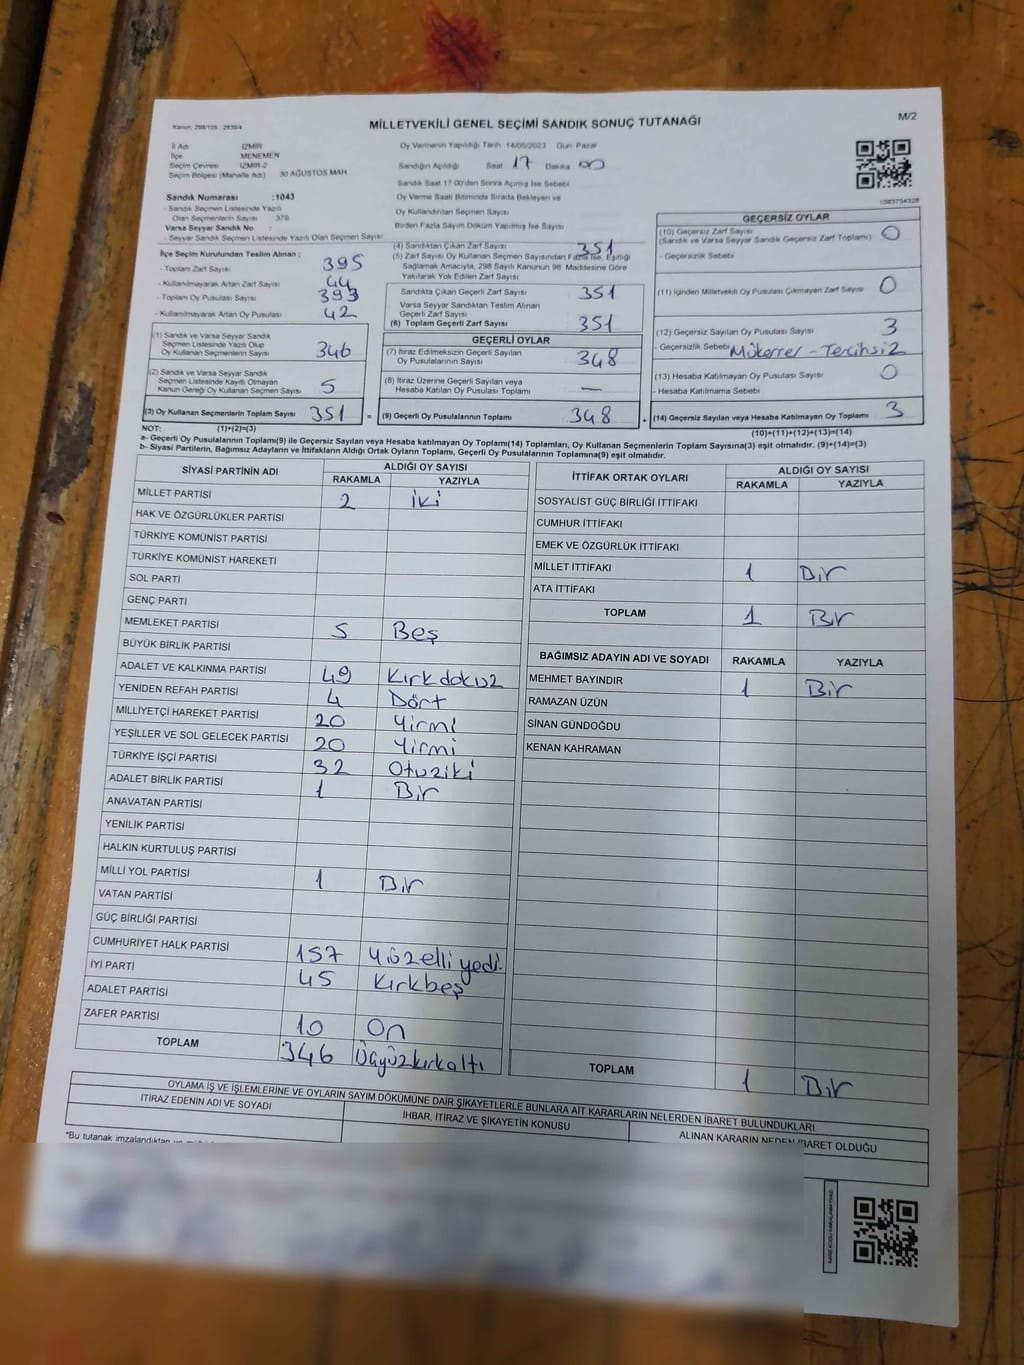 Kanun: 298/105 , 2839/4
MİLLETVEKİLİ GENEL SEÇİMİ SANDIK SONUÇ TUTANAĞI
M/2
İl Adı : İZMİR
İlçe MENEMEN
Seçim Çevresi İZMİR-2
Seçim Bölgesi (Mahalle Adı) 30 AĞUSTOS MAH.
Sandık Numarası : 1043
- Sandık Seçmen Listesinde Yazılı
Olan Seçmenlerin Sayısı 379
Varsa Seyyar Sandık No :
- Seyyar Sandık Seçmen Listesinde Yazılı Olan Seçmen Sayısı
İlçe Seçim Kurulundan Teslim Alınan ;
- Toplam Zarf Sayısı 395
- Kullanılmayarak Artan Zarf Sayısı 44
- Toplam Oy Pusulası Sayısı 393
- Kullanılmayarak Artan Oy Pusulası 42
(1) Sandık ve Varsa Seyyar Sandık
Seçmen Listesinde Yazılı Olup
Oy Kullanan Seçmenlerin Sayısı 346
(2) Sandık ve Varsa Seyyar Sandık
Seçmen Listesinde Kayıtlı Olmayan
Kanun Gereği Oy Kullanan Seçmen Sayısı 5
(3) Oy Kullanan Seçmenlerin Toplam Sayısı 351 =
Oy Vermenin Yapıldığı Tarih 14/05/2023 Gün Pazar
Sandığın Açıldığı Saat 17 Dakika 00
Sandık Saat 17.00'den Sonra Açılmış İse Sebebi
Oy Verme Saati Bitiminde Sırada Bekleyen ve
Oy Kullandırılan Seçmen Sayısı
Birden Fazla Sayım Döküm Yapılmış İse Sayısı
(4) Sandıktan Çıkan Zarf Sayısı 351
(5) Zarf Sayısı Oy Kullanan Seçmen Sayısından Fazla İse, Eşitliği
Sağlamak Amacıyla, 298 Sayılı Kanunun 98. Maddesine Göre
Yakılarak Yok Edilen Zarf Sayısı
Sandıkta Çıkan Geçerli Zarf Sayısı 351
Varsa Seyyar Sandıktan Teslim Alınan
Geçerli Zarf Sayısı
(6) Toplam Geçerli Zarf Sayısı 351
GEÇERLİ OYLAR
(7) İtiraz Edilmeksizin Geçerli Sayılan
Oy Pusulalarının Sayısı 348
(8) İtiraz Üzerine Geçerli Sayılan veya
Hesaba Katılan Oy Pusulası Toplamı —
(9) Geçerli Oy Pusulalarının Toplamı 348 +
1083754328
GEÇERSİZ OYLAR
(10) Geçersiz Zarf Sayısı 0
(Sandık ve Varsa Seyyar Sandık Geçersiz Zarf Toplamı)
- Geçersizlik Sebebi
(11) İçinden Milletvekili Oy Pusulası Çıkmayan Zarf Sayısı 0
(12) Geçersiz Sayılan Oy Pusulası Sayısı 3
- Geçersizlik Sebebi Mükerrer - Tercihsiz
(13) Hesaba Katılmayan Oy Pusulası Sayısı 0
- Hesaba Katılmama Sebebi
(14) Geçersiz Sayılan veya Hesaba Katılmayan Oy Toplamı 3
NOT: (1)+(2)=(3) (10)+(11)+(12)+(13)=(14)
a- Geçerli Oy Pusulalarının Toplamı(9) ile Geçersiz Sayılan veya Hesaba katılmayan Oy Toplamı(14) Toplamları, Oy Kullanan Seçmenlerin Toplam Sayısına(3) eşit olmalıdır. (9)+(14)=(3)
b- Siyasi Partilerin, Bağımsız Adayların ve İttifakların Aldığı Ortak Oyların Toplamı, Geçerli Oy Pusulalarının Toplamına(9) eşit olmalıdır.
SİYASİ PARTİNİN ADI ALDIĞI OY SAYISI
RAKAMLA YAZIYLA
MİLLET PARTİSİ 2 iki
HAK VE ÖZGÜRLÜKLER PARTİSİ
TÜRKİYE KOMÜNİST PARTİSİ
TÜRKİYE KOMÜNİST HAREKETİ
SOL PARTİ
GENÇ PARTİ
MEMLEKET PARTİSİ 5 Beş
BÜYÜK BİRLİK PARTİSİ
ADALET VE KALKINMA PARTİSİ 49 Kırkdokuz
YENİDEN REFAH PARTİSİ 4 Dört
MİLLİYETÇİ HAREKET PARTİSİ 20 Yirmi
YEŞİLLER VE SOL GELECEK PARTİSİ 20 Yirmi
TÜRKİYE İŞÇİ PARTİSİ 32 Otuziki
ADALET BİRLİK PARTİSİ 1 Bir
ANAVATAN PARTİSİ
YENİLİK PARTİSİ
HALKIN KURTULUŞ PARTİSİ
MİLLİ YOL PARTİSİ 1 Bir
VATAN PARTİSİ
GÜÇ BİRLİĞİ PARTİSİ
CUMHURİYET HALK PARTİSİ 157 Yüzelliyedi.
İYİ PARTİ 45 Kırkbeş
ADALET PARTİSİ
ZAFER PARTİSİ 10 On
TOPLAM 346 Üçyüzkırkaltı
İTTİFAK ORTAK OYLARI ALDIĞI OY SAYISI
RAKAMLA YAZIYLA
SOSYALİST GÜÇ BİRLİĞİ İTTİFAKI
CUMHUR İTTİFAKI
EMEK VE ÖZGÜRLÜK İTTİFAKI
MİLLET İTTİFAKI 1 Bir
ATA İTTİFAKI
TOPLAM 1 Bir
BAĞIMSIZ ADAYIN ADI VE SOYADI RAKAMLA YAZIYLA
MEHMET BAYINDIR 1 Bir
RAMAZAN ÜZÜN
SİNAN GÜNDOĞDU
KENAN KAHRAMAN
TOPLAM 1 Bir
OYLAMA İŞ VE İŞLEMLERİNE VE OYLARIN SAYIM DÖKÜMÜNE DAİR ŞİKAYETLERLE BUNLARA AİT KARARLARIN NELERDEN İBARET BULUNDUKLARI
İTİRAZ EDENİN ADI VE SOYADI İHBAR, İTİRAZ VE ŞİKAYETİN KONUSU ALINAN KARARIN NEDEN İBARET OLDUĞU
*Bu tutanak imzalandıktan